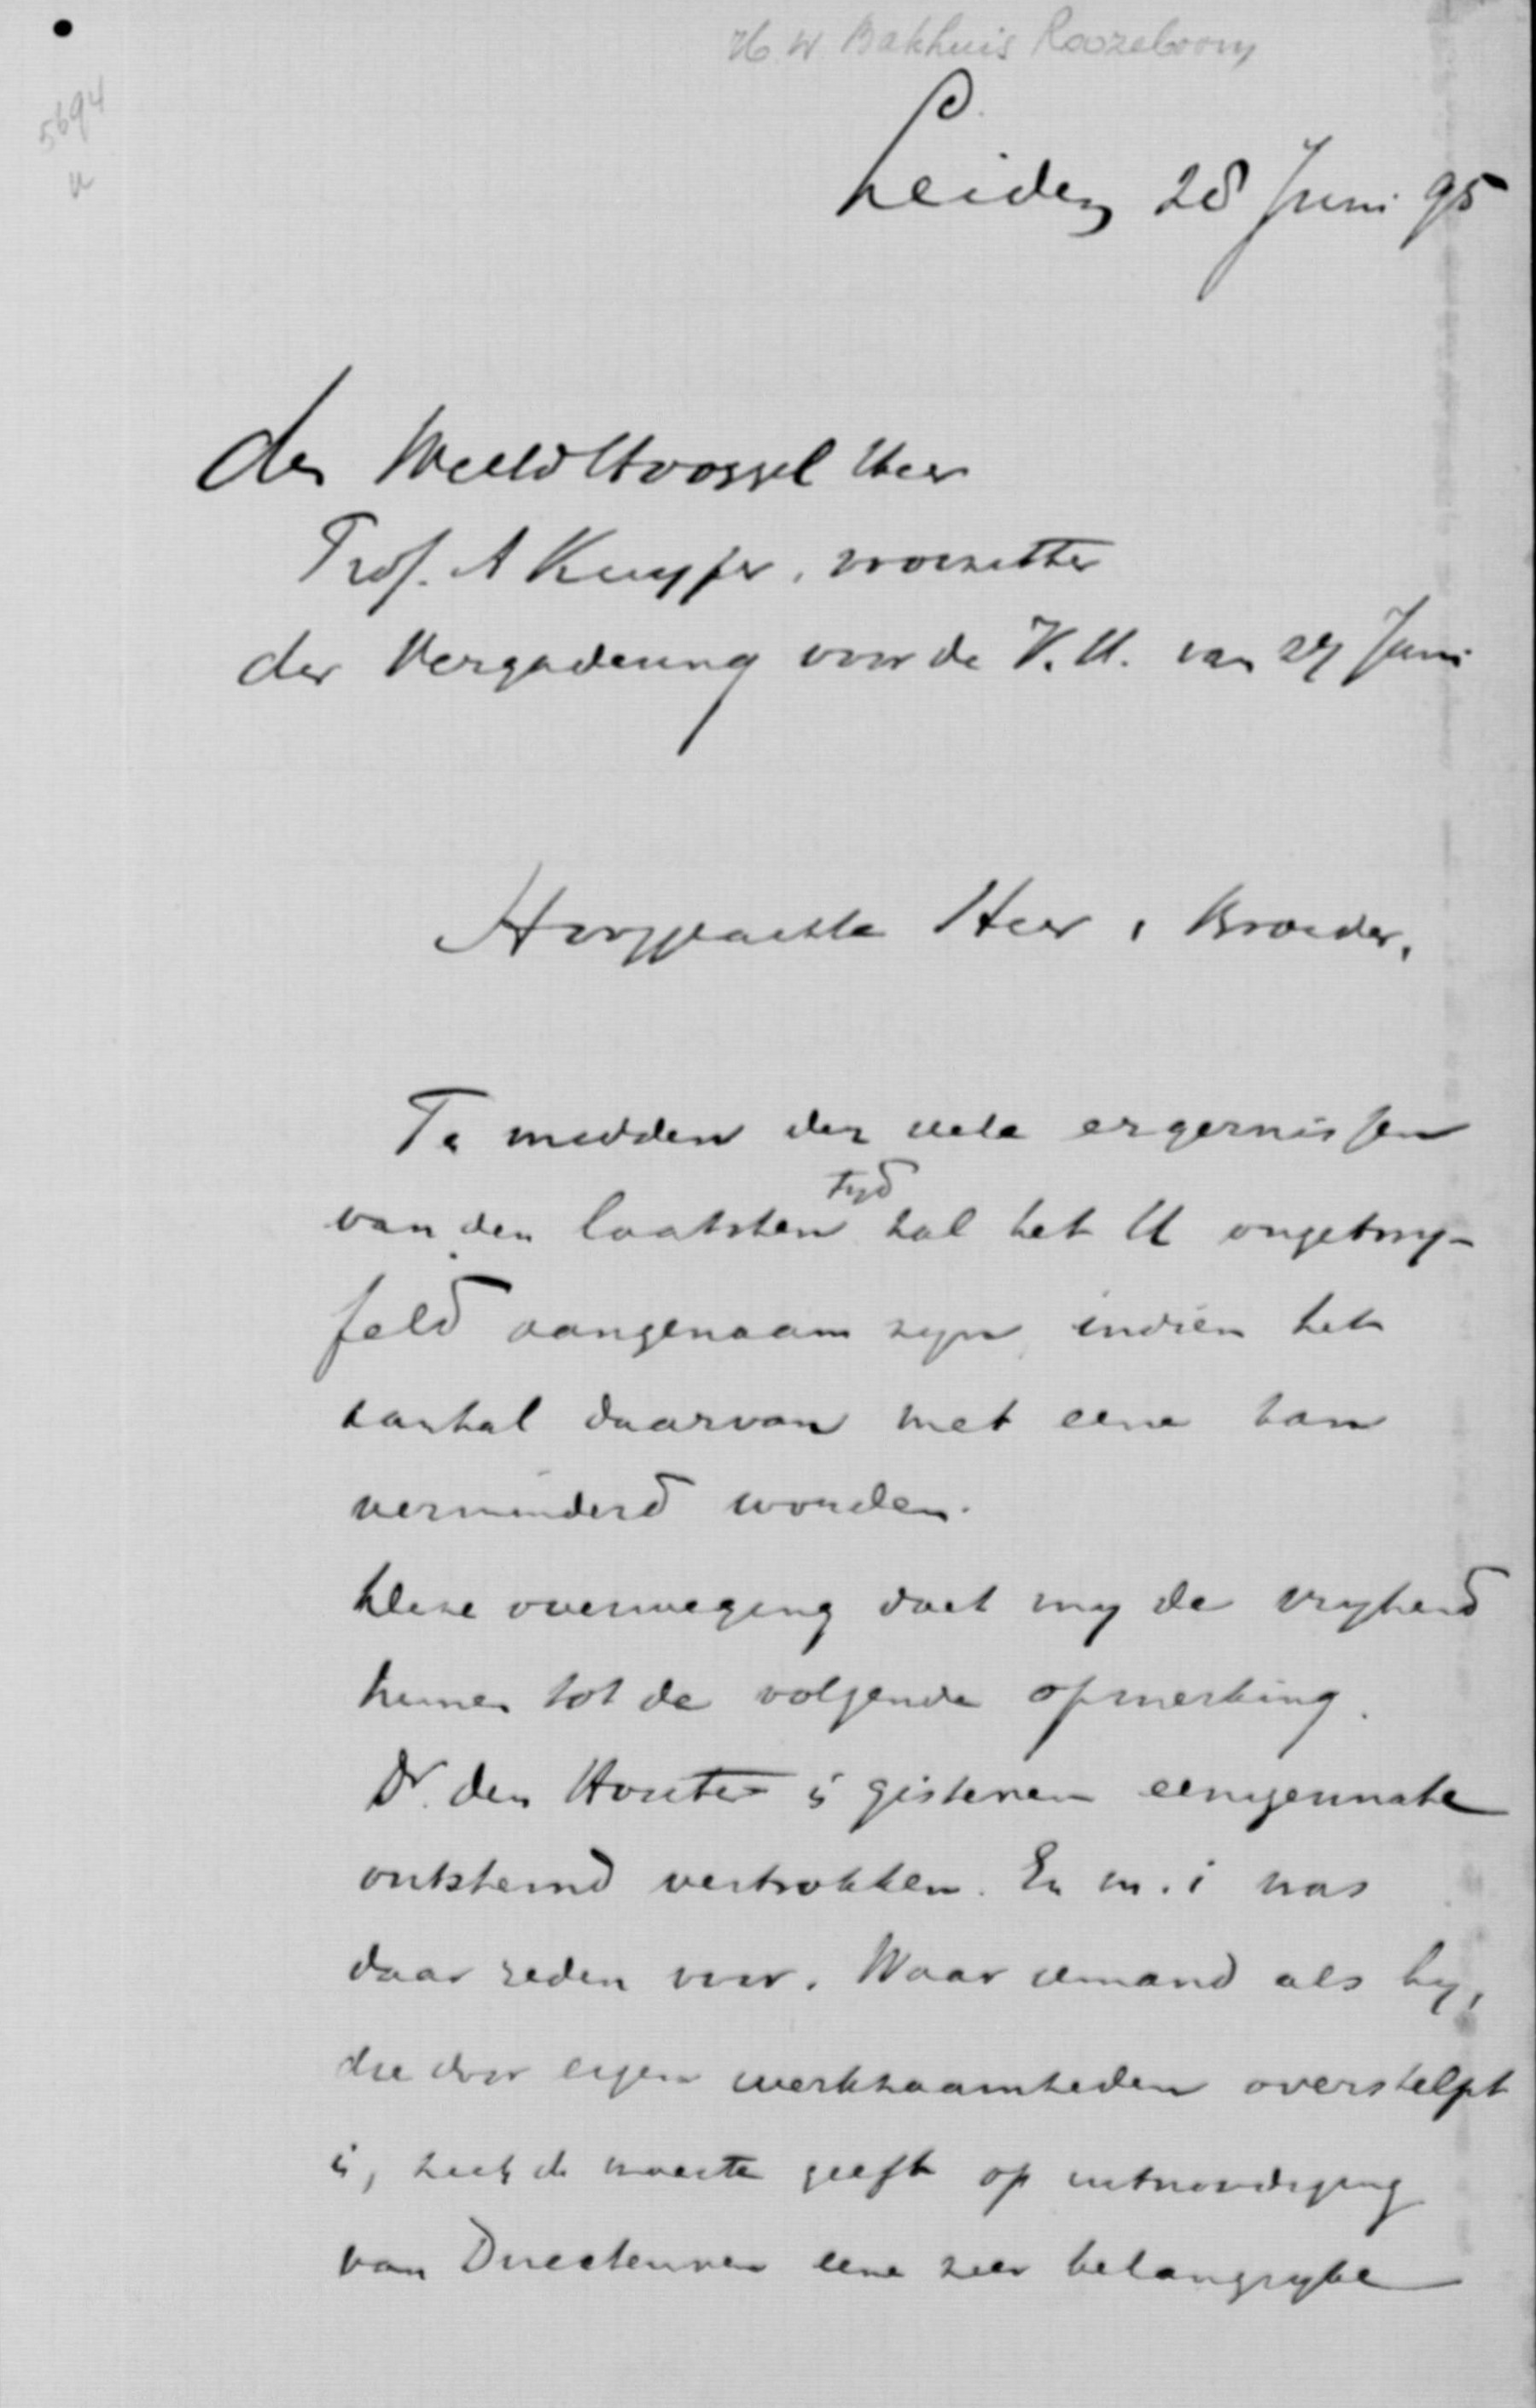 H. W Bakhuis Roozeboom
5694
Leiden 28 Juni 95
den WelEd Hooggel Heer
Prof. A Kuyper, voorzitter
der Vergadering voor de V.U. van 27 Juni
Hooggeachte Heer, Broeder,
Te midden der vele ergernissen
van den laatsten tyd zal het U ongetwy-
feld aangenaam zyn, indien het
aantal daarvan met eene kan
verminderd worden.
Deze overweging doet my de vryheid
nemen tot de volgende opmerking.
Dr. den Houter is gisteren eenigermate
ontstemd vertrokken. En m. i was
daar reden voor. Waar iemand als hy,
die door eigen werkzaamheden overstelpt
is, zich de moeite geeft op uitnoodiging
van Directeuren eene zeer belangryke